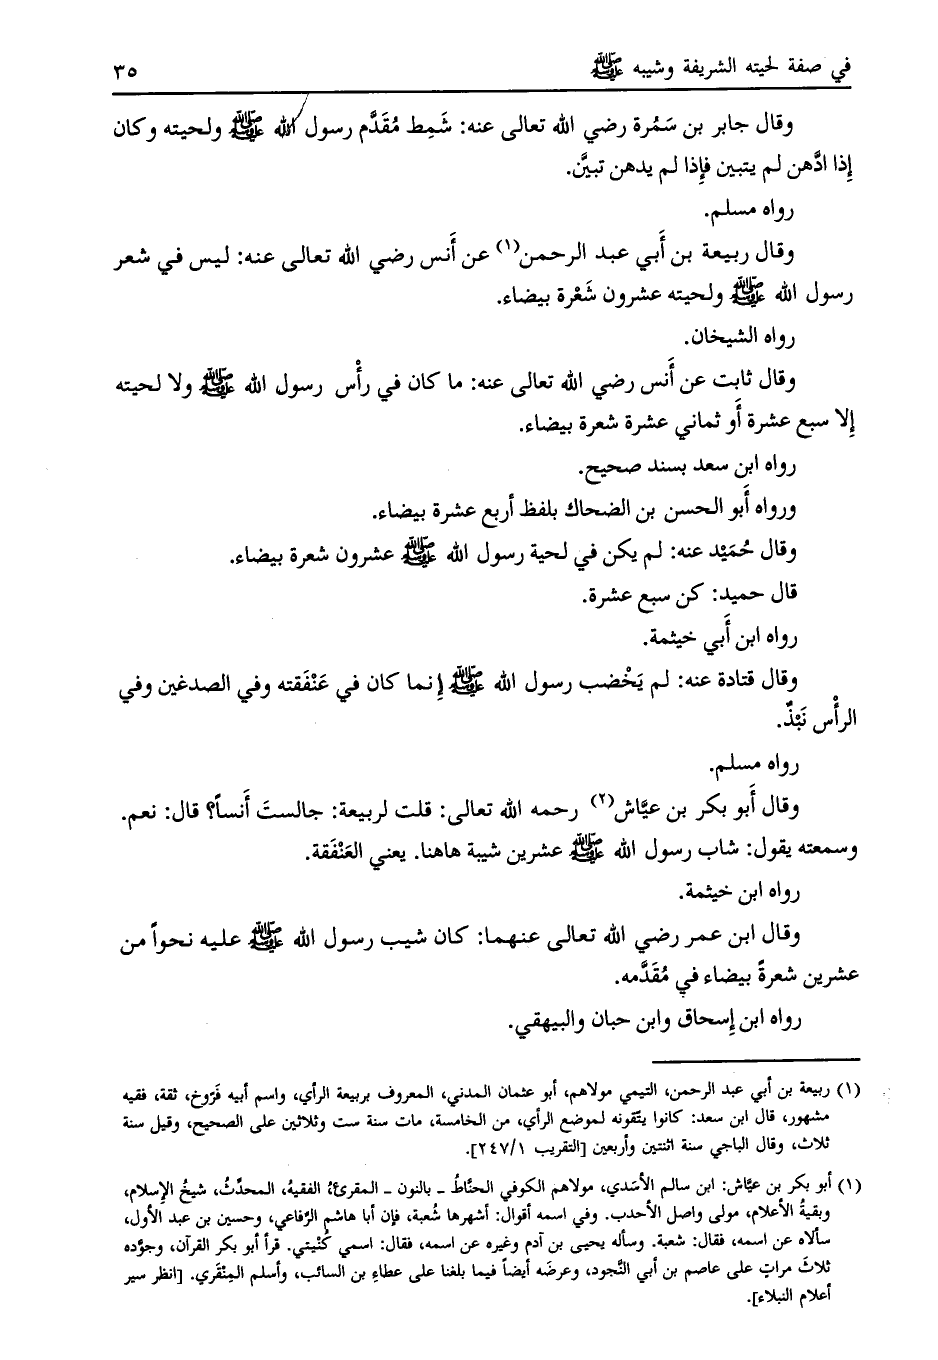 في صفة لحيته الشريفة وشيبه ﷺ ٣٥
وقال جابر بن سَمُرة رضي الله تعالى عنه: شَمِط مُقَدَّم رسول الله ﷺ ولحيته وكان
إذا ادَّهن لم يتبين فإذا لم يدهن تبيَّن.
رواه مسلم.
وقال ربيعة بن أَبي عبد الرحمن(١) عن أَنس رضي الله تعالى عنه: ليس في شعر
رسول الله ﷺ ولحيته عشرون شَعْرة بيضاء.
رواه الشيخان.
وقال ثابت عن أَنس رضي الله تعالى عنه: ما كان في رأْس رسول الله ﷺ ولا لحيته
إلا سبع عشرة أَو ثماني عشرة شعرة بيضاء.
رواه ابن سعد بسند صحيح.
ورواه أَبو الحسن بن الضحاك بلفظ أربع عشرة بيضاء.
وقال حُمَيْد عنه: لم يكن في لحية رسول الله ﷺ عشرون شعرة بيضاء.
قال حميد: كن سبع عشرة.
رواه ابن أَبي خيثمة.
وقال قتادة عنه: لم يَخْضب رسول الله ﷺ إنما كان في عَنْفَقته وفي الصدغين وفي
الرأْس نَبْذٌ.
رواه مسلم.
وقال أَبو بكر بن عيَّاش(٢) رحمه الله تعالى: قلت لربيعة: جالستَ أَنساً؟ قال: نعم.
وسمعته يقول: شاب رسول الله ﷺ عشرين شيبة هاهنا. يعني العَنْفَقة.
رواه ابن خيثمة.
وقال ابن عمر رضي الله تعالى عنهما: كان شيب رسول الله ﷺ عليه نحواً من
عشرين شعرةً بيضاء في مُقَدَّمه.
رواه ابن إسحاق وابن حبان والبيهقي.
(١) ربيعة بن أبي عبد الرحمن، التيمي مولاهم، أبو عثمان المدني، المعروف بربيعة الرأي، واسم أبيه فَرّوخ، ثقة، فقيه
مشهور، قال ابن سعد: كانوا يتّقونه لموضع الرأي، من الخامسة، مات سنة ست وثلاثين على الصحيح، وقيل سنة
ثلاث، وقال الباجي سنة اثنتين وأربعين [التقريب ٢٤٧/١].
(١) أبو بكر بن عيّاش: ابن سالم الأسَدي، مولاهم الكوفي الحنّاطُ ـ بالنون ـ المقرئءُ الفقيهُ، المحدِّثُ، شيخُ الإسلام،
وبقيةُ الأعلام، مولى واصل الأحدب. وفي اسمه أقوال: أشهرها شُعبة، فإن أبا هاشم الرِّفاعي، وحسين بن عبد الأول،
سألاه عن اسمه، فقال: شعبة. وسأله يحيى بن آدم وغيره عن اسمه، فقال: اسمي كُنْيتي. قرأ أبو بكر القرآن، وجوَّده
ثلاثَ مراتٍ على عاصم بن أبي النَّجود، وعرضَه أيضاً فيما بلغنا على عطاءِ بن السائب، وأسلم المِنْقَري. [انظر سير
أعلام النبلاء].